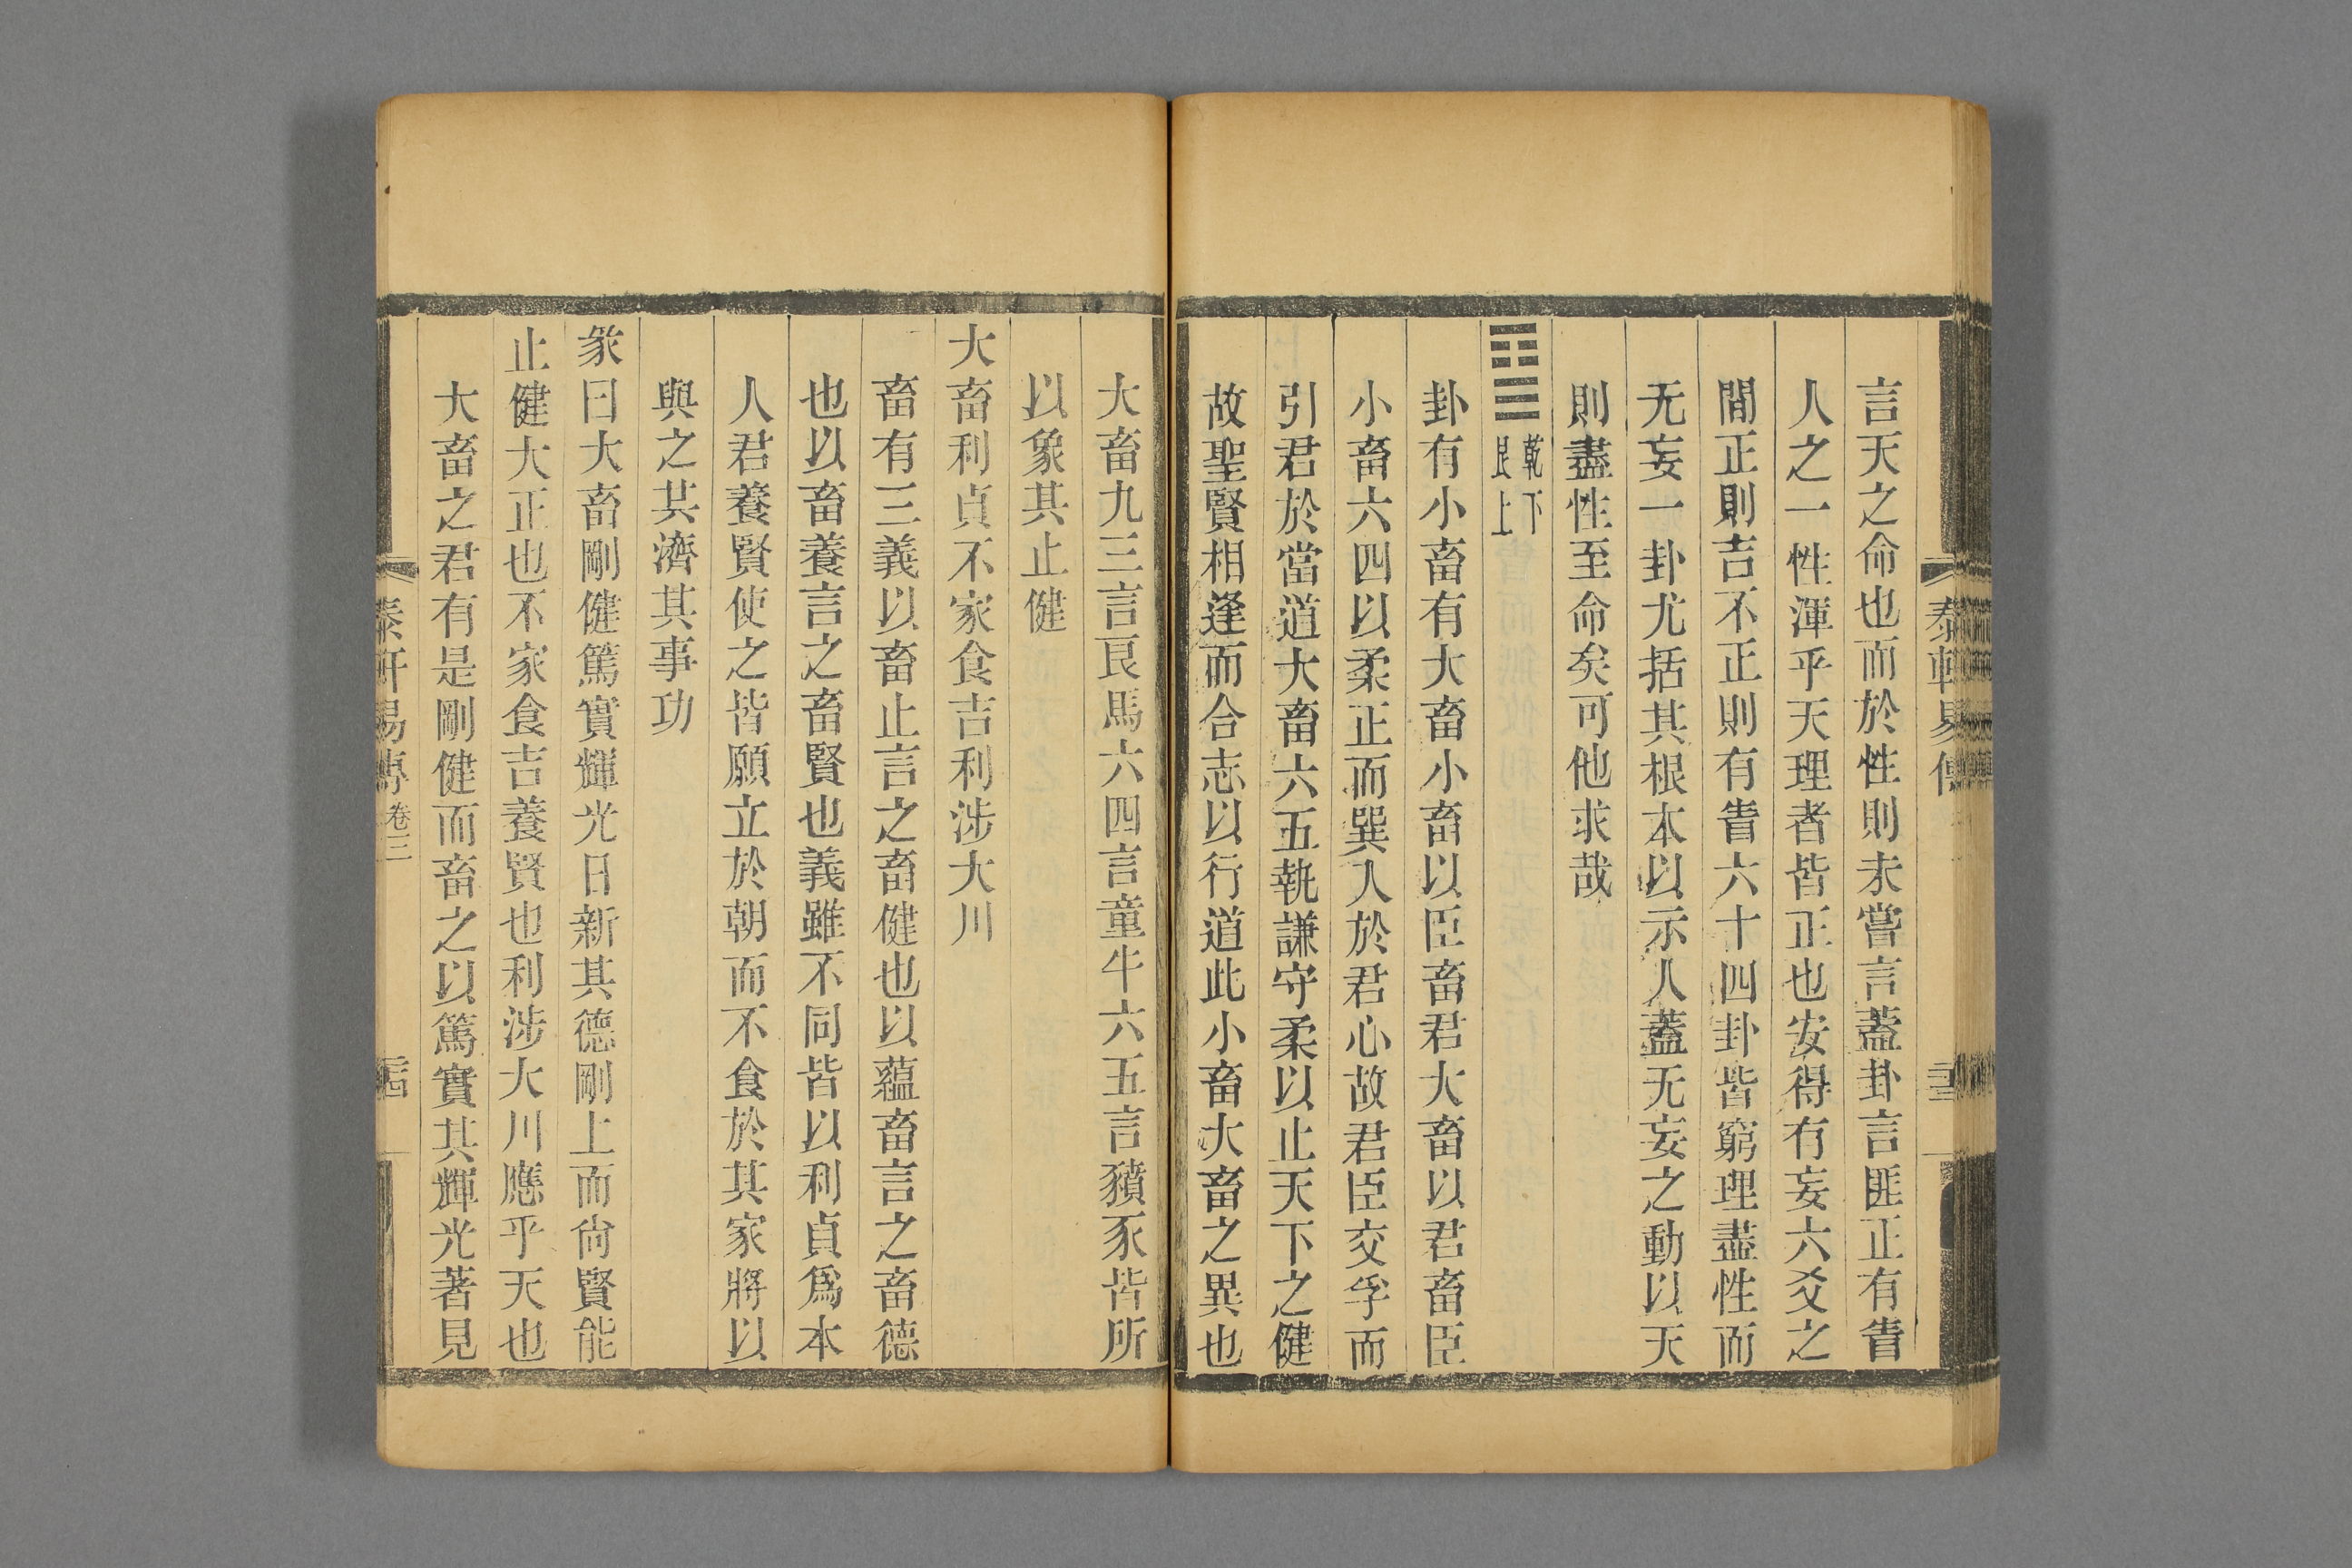 言天之命也而於性則未嘗言蓋卦言匪正有眚
人之一性渾乎天理者皆正也安得有妄六爻之
間正則吉不正則有眚六十四卦皆窮理盡性而
无妄一卦尤括其根本以示人蓋无妄之動以天
則盡性至命矣可他求哉
䷙ 乾下
艮上
卦有小畜有大畜小畜以臣畜君大畜以君畜臣
小畜六四以柔正而巽入於君心故君臣交孚而
引君於當道大畜六五執謙守柔以止天下之健
故聖賢相逢而合志以行道此小畜大畜之異也
大畜九三言良馬六四言童牛六五言豶豕皆所
以象其止健
大畜利貞不家食吉利涉大川
畜有三義以畜止言之畜健也以蘊畜言之畜德
也以畜養言之畜賢也義雖不同皆以利貞爲本
人君養賢使之皆願立於朝而不食於其家將以
與之共濟其事功
彖曰大畜剛健篤實輝光日新其德剛上而尙賢能
止健大正也不家食吉養賢也利涉大川應乎天也
大畜之君有是剛健而畜之以篤實其輝光著見
泰軒易傳 卷三